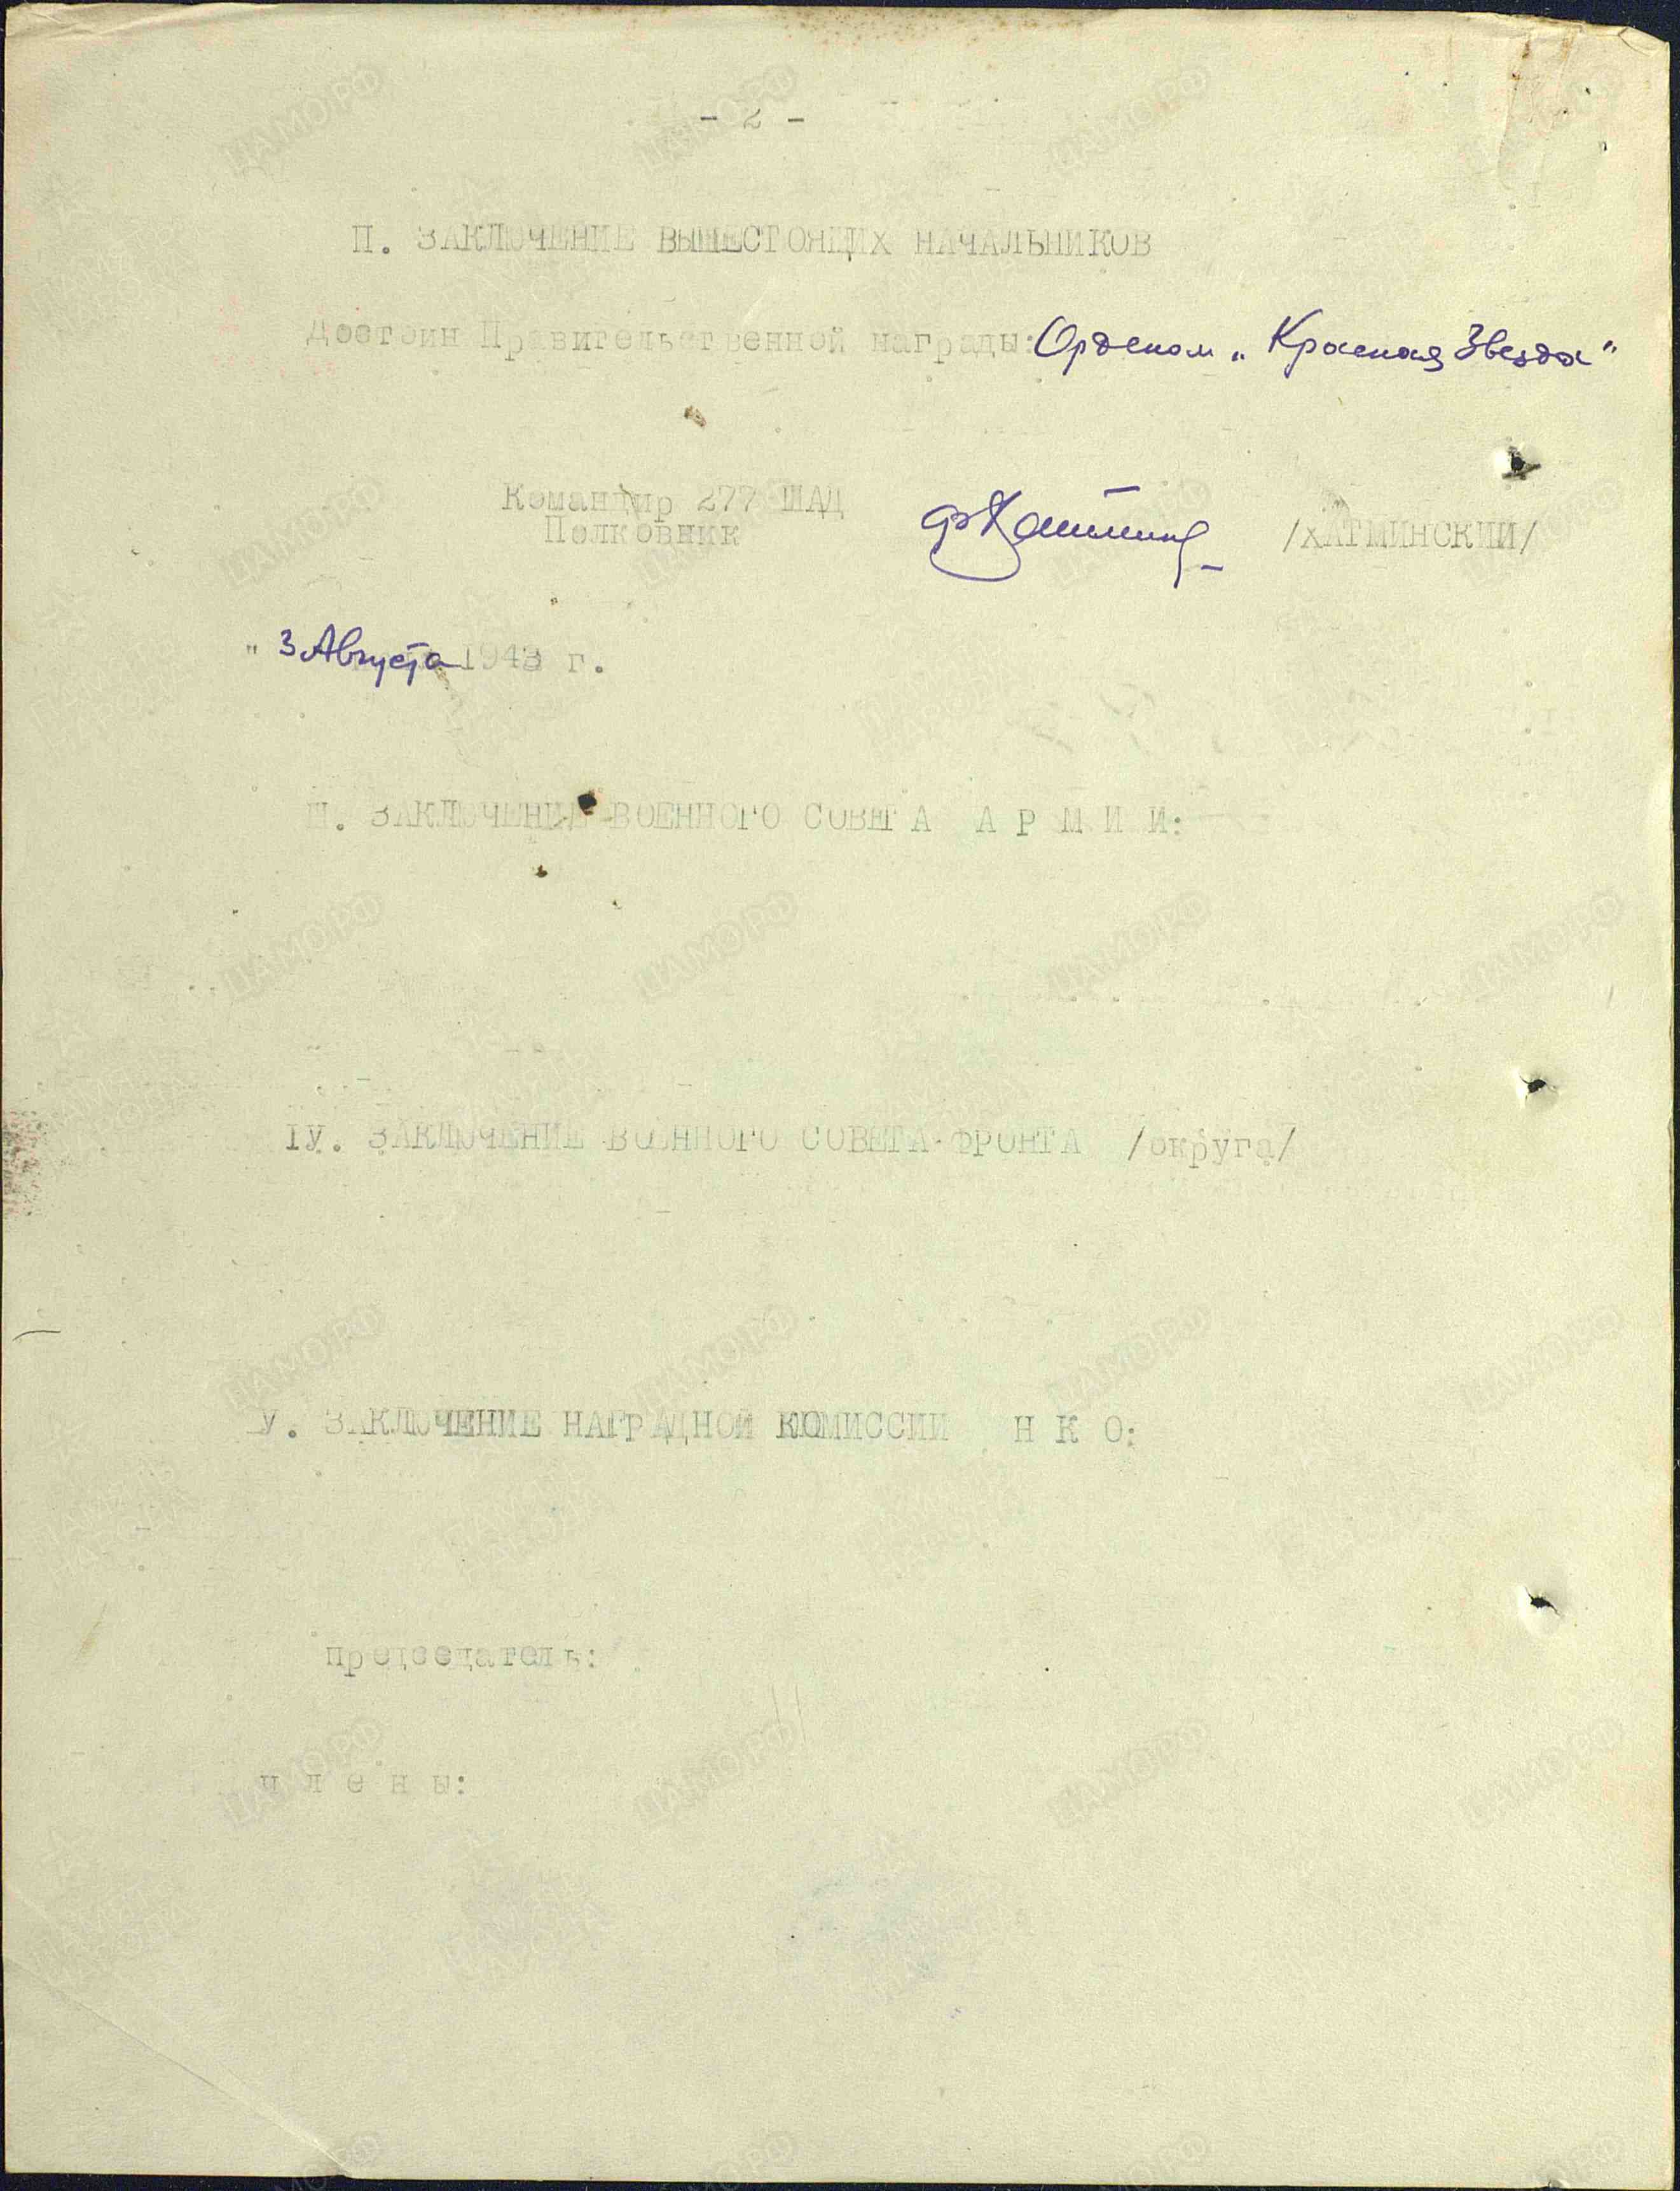 - 2 -
П. ЗАКЛЮЧЕНИЕ ВЫШЕСТОЯЩИХ НАЧАЛЬНИКОВ
Достоин Правительственной награды: Орденом „Красная Звезда"
Командир 277 ШАД
Полковник /ХАТМИНСКИЙ/
" 3 Августа 1943 г.
Ш. ЗАКЛЮЧЕНИЕ ВОЕННОГО СОВЕТА А Р М И И:
IУ. ЗАКЛЮЧЕНИЕ ВОЕННОГО СОВЕТА ФРОНТА /округа/
У. ЗАКЛЮЧЕНИЕ НАГРАДНОЙ КОМИССИИ Н К О:
председатель:
ч л е н ы: